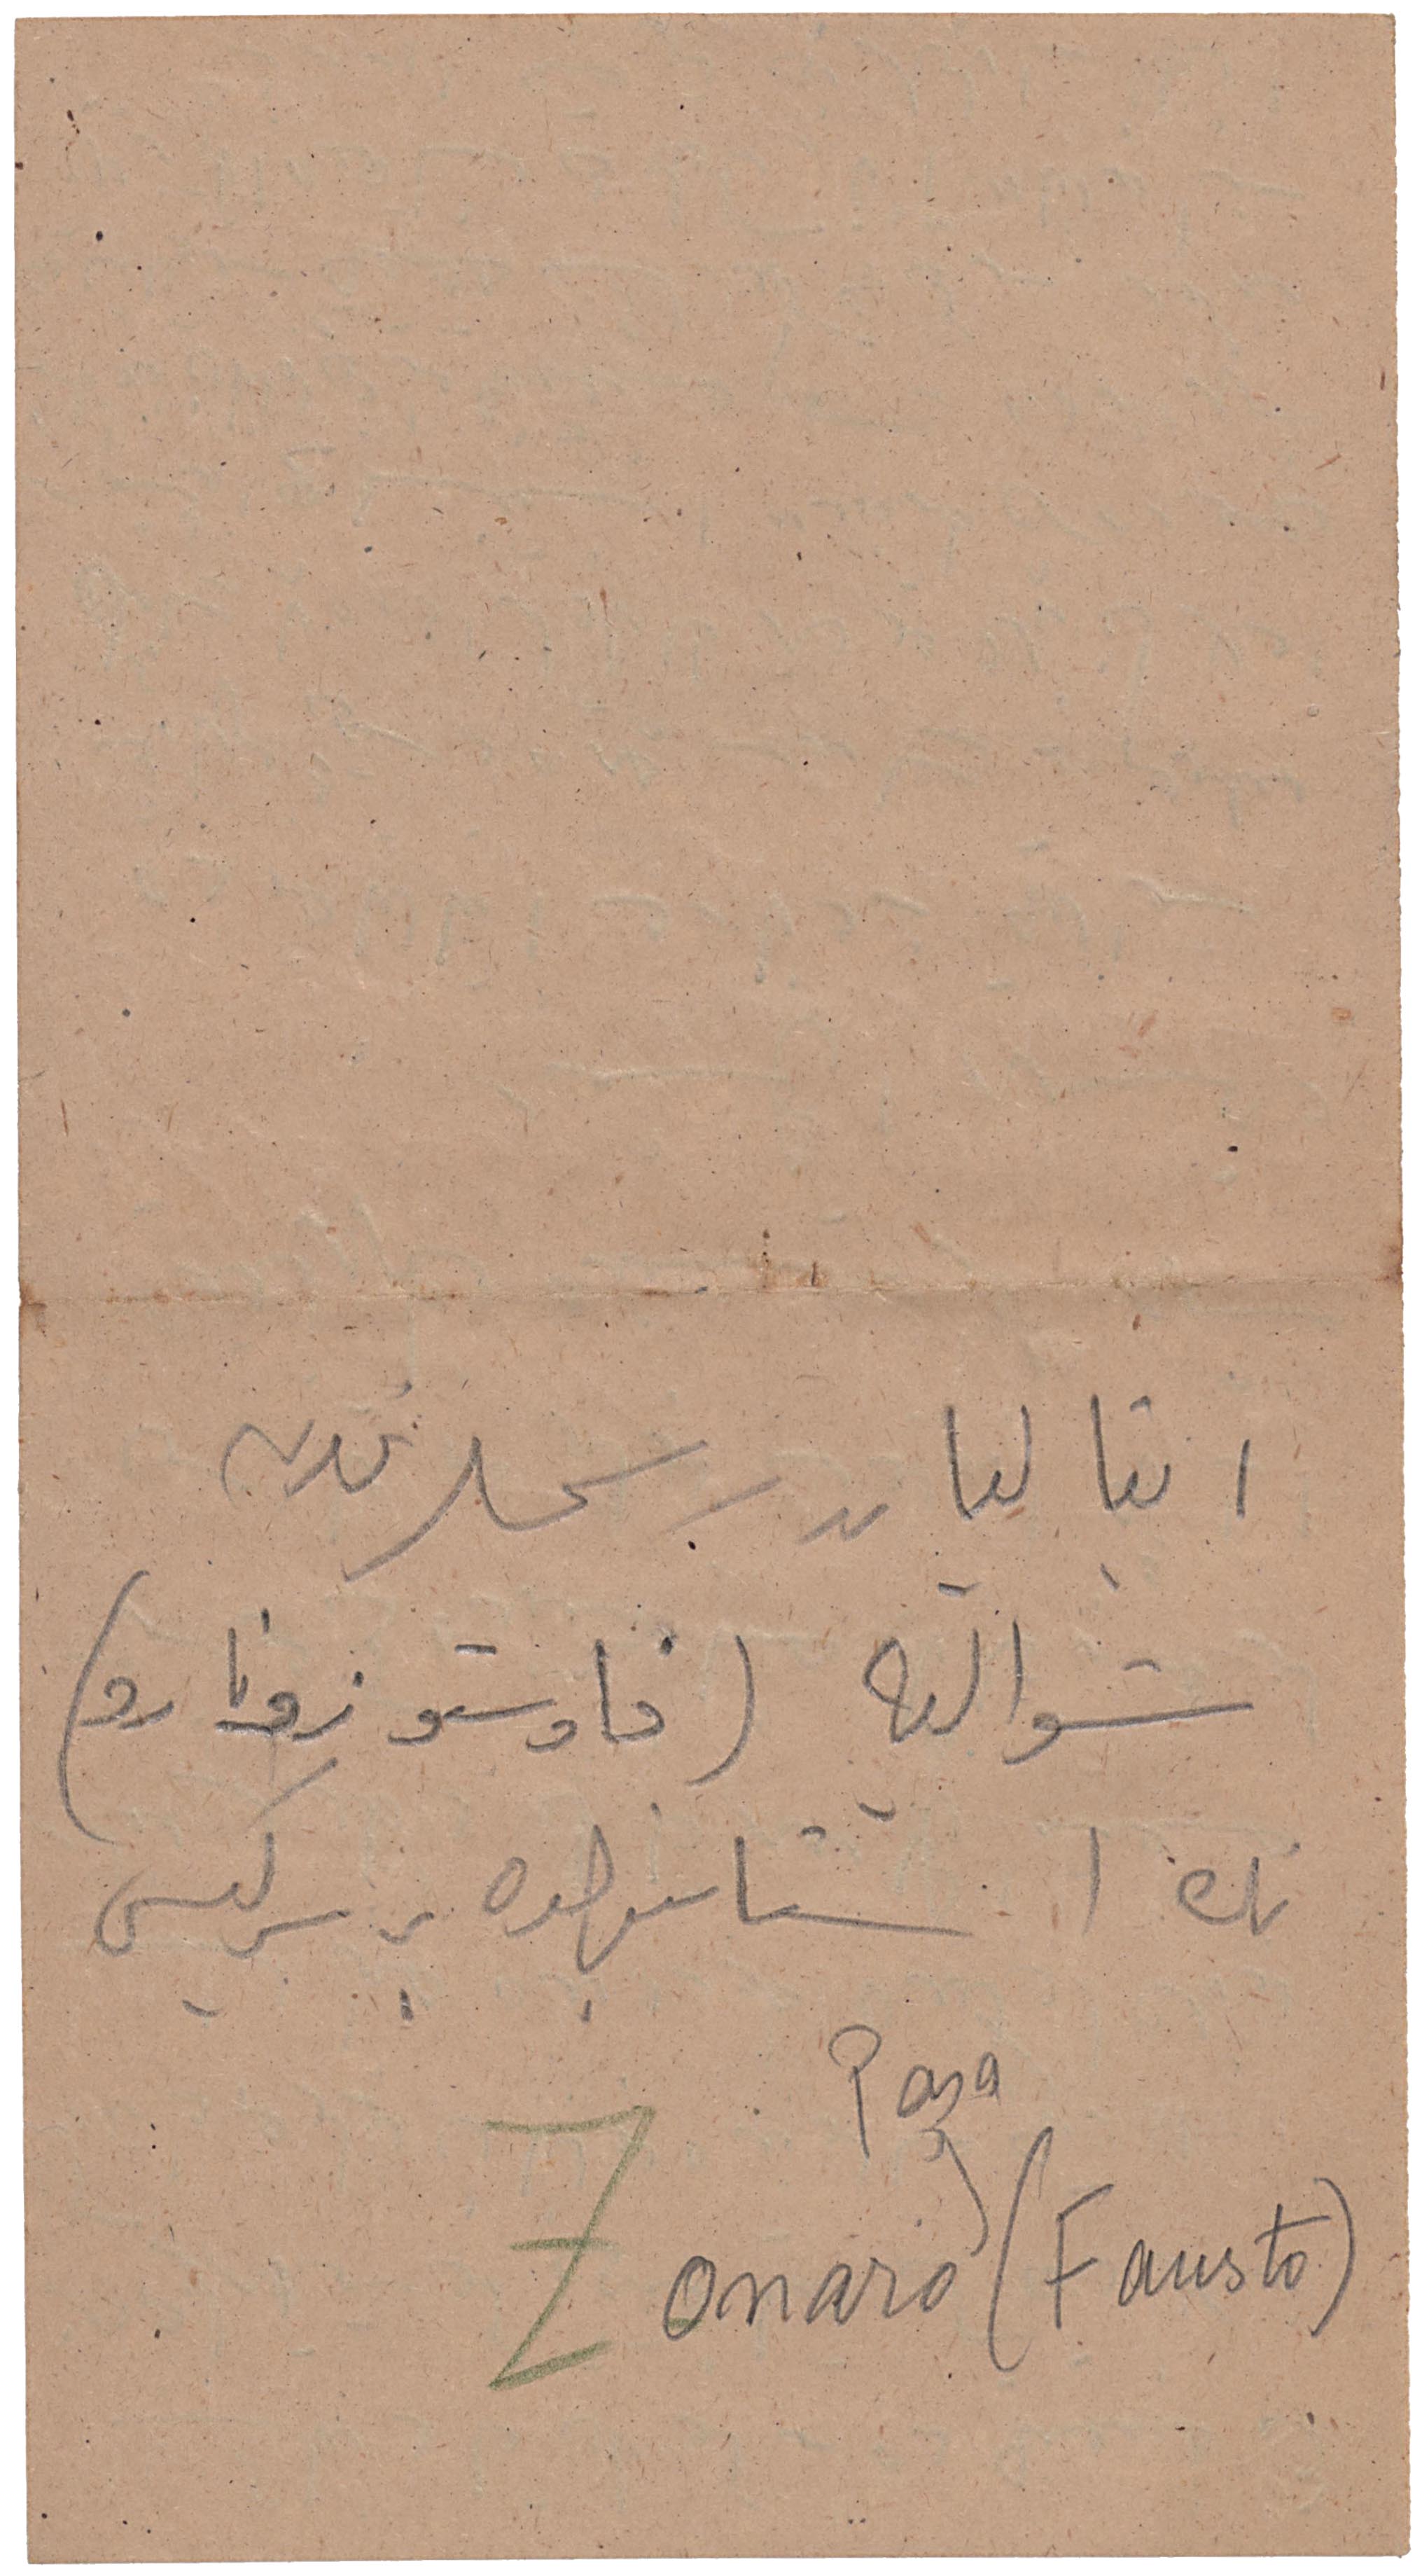 ایتالیا
شوالیه (فاوستو زونارو)
نك استانبولده بر سركیسی
Paşa
Zonaro (Fausto)